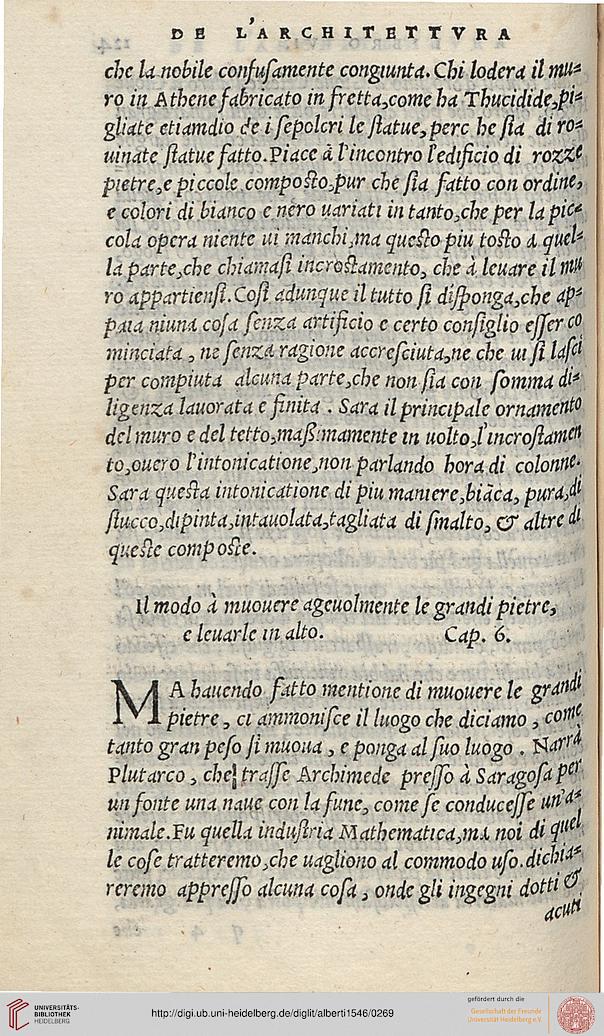 DE L'ARCHITETTVRA
che la nobile confusamente congiunta. Chi lodera il mu=
ro in Athene fabricato in fretta,come ha Thucidide,pi=
gliate etiamdio de i sepolcri le statue, perc he sia di ro=
uinate statue fatto.Piace à l'incontro l'edificio di rozze
pietre,e piccole composto,pur che sia fatto con ordine,
e colori di bianco e nero uariati in tanto,che per la pic=
cola opera niente ui manchi,ma questo piu tosto a quel=
la parte,che chiamasi incrostamento, che à leuare il mu
ro appartiensi.Cosi adunque il tutto si disponga,che ap=
paia niuna cosa senza artificio e certo consiglio esser co
minciata , ne senza ragione accresciuta,ne che ui si lasci
per compiuta alcuna parte,che non sia con somma di=
ligenza lauorata e finita . Sara il principale ornamento
del muro e del tetto,maßimamente in uolto,l'incrostamen
to,ouero l'intonicatione,non parlando hora di colonne.
Sara questa intonicatione di piu maniere,biãca, pura,di
stucco,dipinta,intauolata,tagliata di smalto, & altre di
queste composte.
Il modo à muouere ageuolmente le grandi pietre,
e leuarle in alto. Cap. 6.
MA hauendo fatto mentione di muouere le grandi
pietre , ci ammonisce il luogo che diciamo , come
tanto gran peso si muoua , e ponga al suo luogo . Narra
Plutarco , che trasse Archimede presso à Saragosa per
un fonte una naue con la fune, come se conducesse un'a=
nimale.Fu quella industria Mathematica,ma noi di quel
le cose tratteremo,che uagliono al commodo uso.dichia=
reremo appresso alcuna cosa , onde gli ingegni dotti &
acuti
UNIVERSITÄTS-
BIBLIOTHEK
HEIDELBERG
http://digi.ub.uni-heidelberg.de/diglit/alberti1546/0269
gefördert durch die
Gesellschaft der Freunde
Universität Heidelberg e.V.